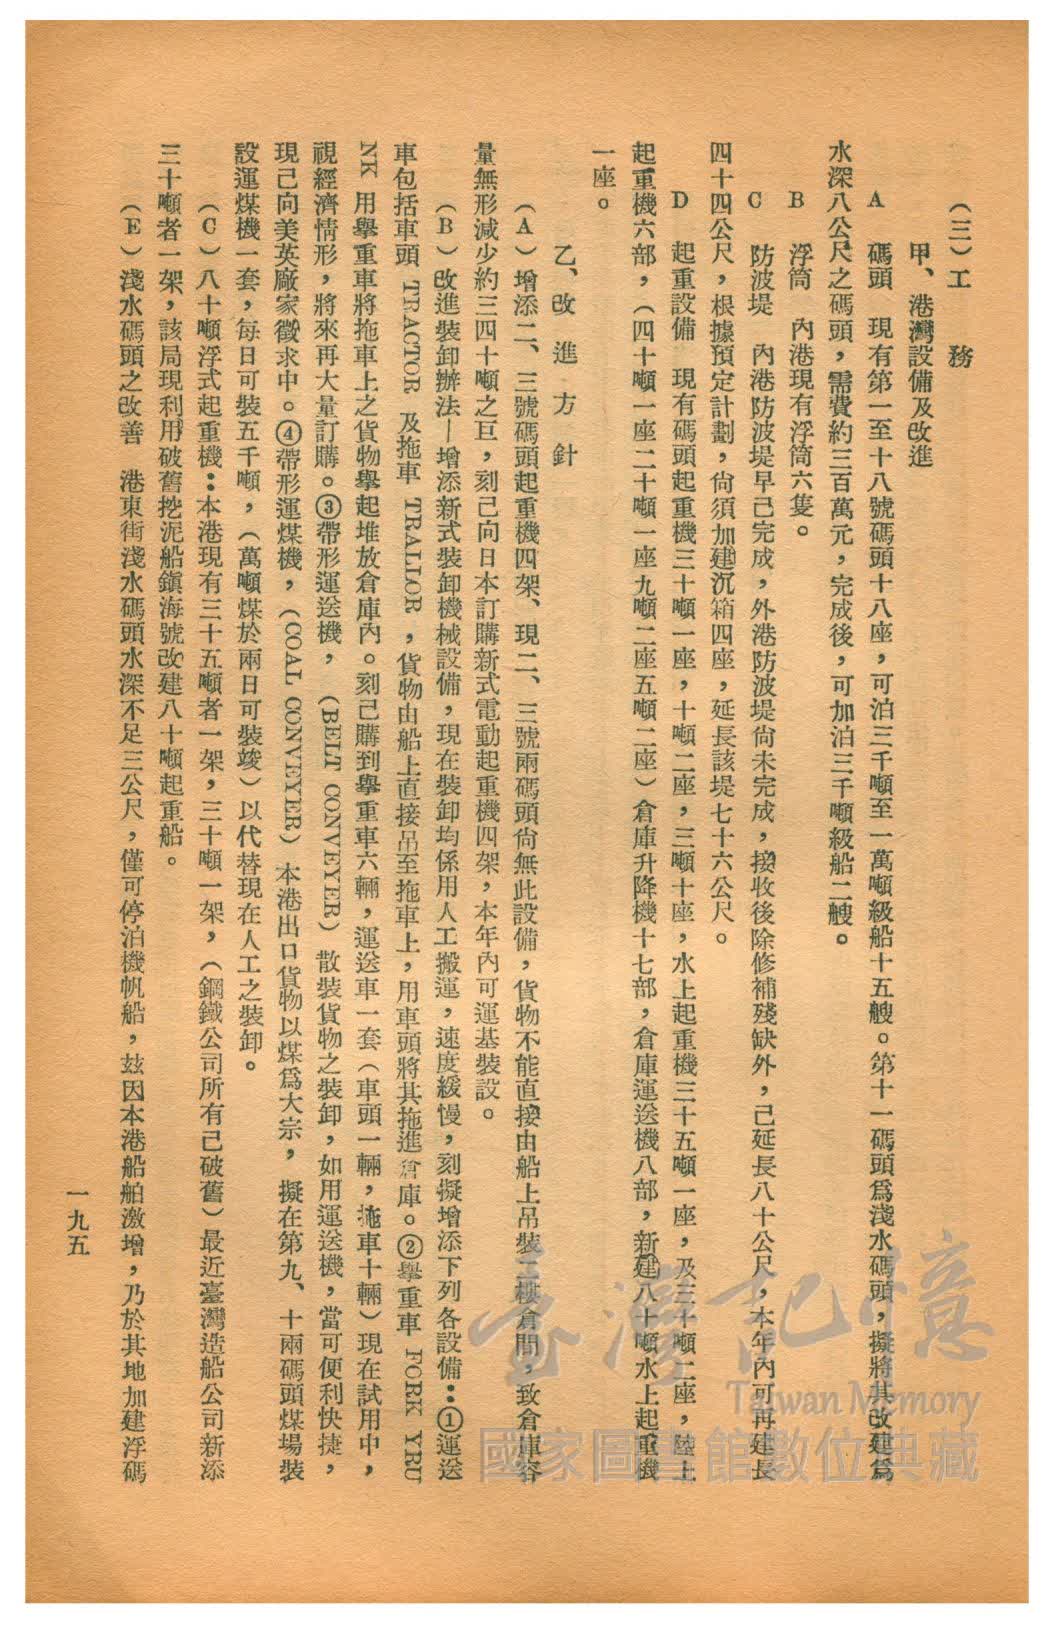 （三）工　務
甲、港灣設備及改進
A　碼頭　現有第一至十八號碼頭十八座，可泊三千噸至一萬噸級船十五艘。第十一碼頭爲淺水碼頭，擬將其改建爲
水深八公尺之碼頭，需費約三百萬元，完成後，可加泊三千噸級船二艘。
B　浮筒　內港現有浮筒六隻。
C　防波堤　內港防波堤早已完成，外港防波堤尙未完成，接收後除修補殘缺外，已延長八十公尺，本年內可再建長
四十四公尺，根據預定計劃，尙須加建沉箱四座，延長該堤七十六公尺。
D　起重設備　現有碼頭起重機三十噸一座，十噸二座，三噸十座，水上起重機三十五噸一座，及三十噸二座，陸上
起重機六部，（四十噸一座二十噸一座九噸二座五噸二座）倉庫升降機十七部，倉庫運送機八部，新建八十噸水上起重機
一座。
乙、改進方針
（A）增添二、三號碼頭起重機四架、現二、三號兩碼頭尙無此設備，貨物不能直接由船上吊裝二樓倉間，致倉庫容
量無形減少約三四十噸之巨，刻已向日本訂購新式電動起重機四架，本年內可運基裝設。
（B）改進裝卸辦法—增添新式裝卸機械設備，現在裝卸均係用人工搬運，速度緩慢，刻擬增添下列各設備：①運送
車包括車頭 TRACTOR 及拖車 TRALIOR，貨物由船上直接吊至拖車上，用車頭將其拖進倉庫。②擧重車 FORK YRU
NK 用擧重車將拖車上之貨物擧起堆放倉庫內。刻已購到擧重車六輛，運送車一套（車頭一輛，拖車十輛）現在試用中，
視經濟情形，將來再大量訂購。③帶形運送機，（BELT CONVEYER）散裝貨物之裝卸，如用運送機，當可便利快捷，
現已向美英廠家徵求中。④帶形運煤機，（COAL CONVEYER）本港出口貨物以煤爲大宗，擬在第九、十兩碼頭煤場裝
設運煤機一套，每日可裝五千噸，（萬噸煤於兩日可裝竣）以代替現在人工之裝卸。
（C）八十噸浮式起重機：本港現有三十五噸者一架，三十噸一架，（鋼鐵公司所有已破舊）最近臺灣造船公司新添
三十噸者一架，該局現利用破舊挖泥船鎭海號改建八十噸起重船。
（E）淺水碼頭之改善　港東街淺水碼頭水深不足三公尺，僅可停泊機帆船，玆因本港船舶激增，乃於其地加建浮碼
一九五
臺灣記憶
Taiwan Memory
國家圖書館數位典藏